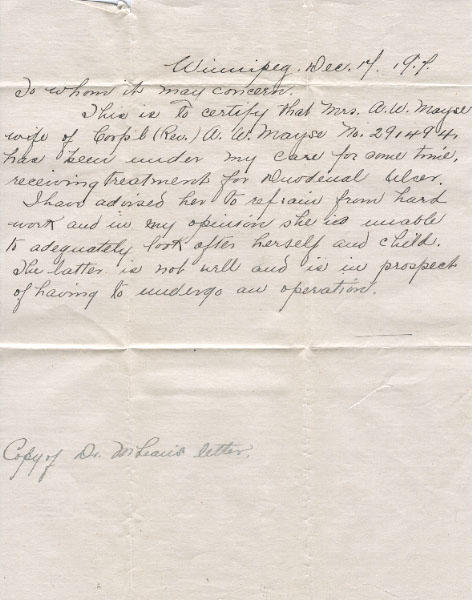 Winnipeg. Dec. 17. 19.
To whom it may concern.
This is to certify that Mrs. A. W. Mayse
wife of Corp'l (Rev.) A. W. Mayse No. 291494,
has been under my care for some time,
receiving treatment for Duodenal Ulcer.
I have advised her to refrain from hard
work and in my opinion she is unable
to adequately look after herself and child.
The latter is not well and is in prospect
of having to undergo an operation.
Copy of Dr. letter.